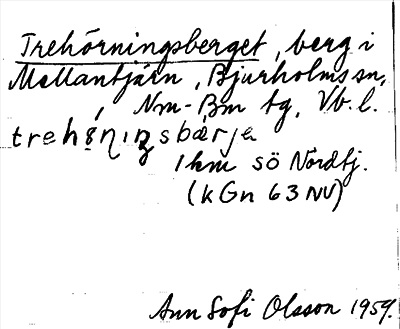 Trehörningsberget, berg i
Mellantjärn, Bjurholms sn,
Nm-Bm tg, Vb. l.
trehø̣ṇıŋsbærje
1 km sö Nördtj.
(kGn 63 NV)
Ann Sofi Olsson 1959.